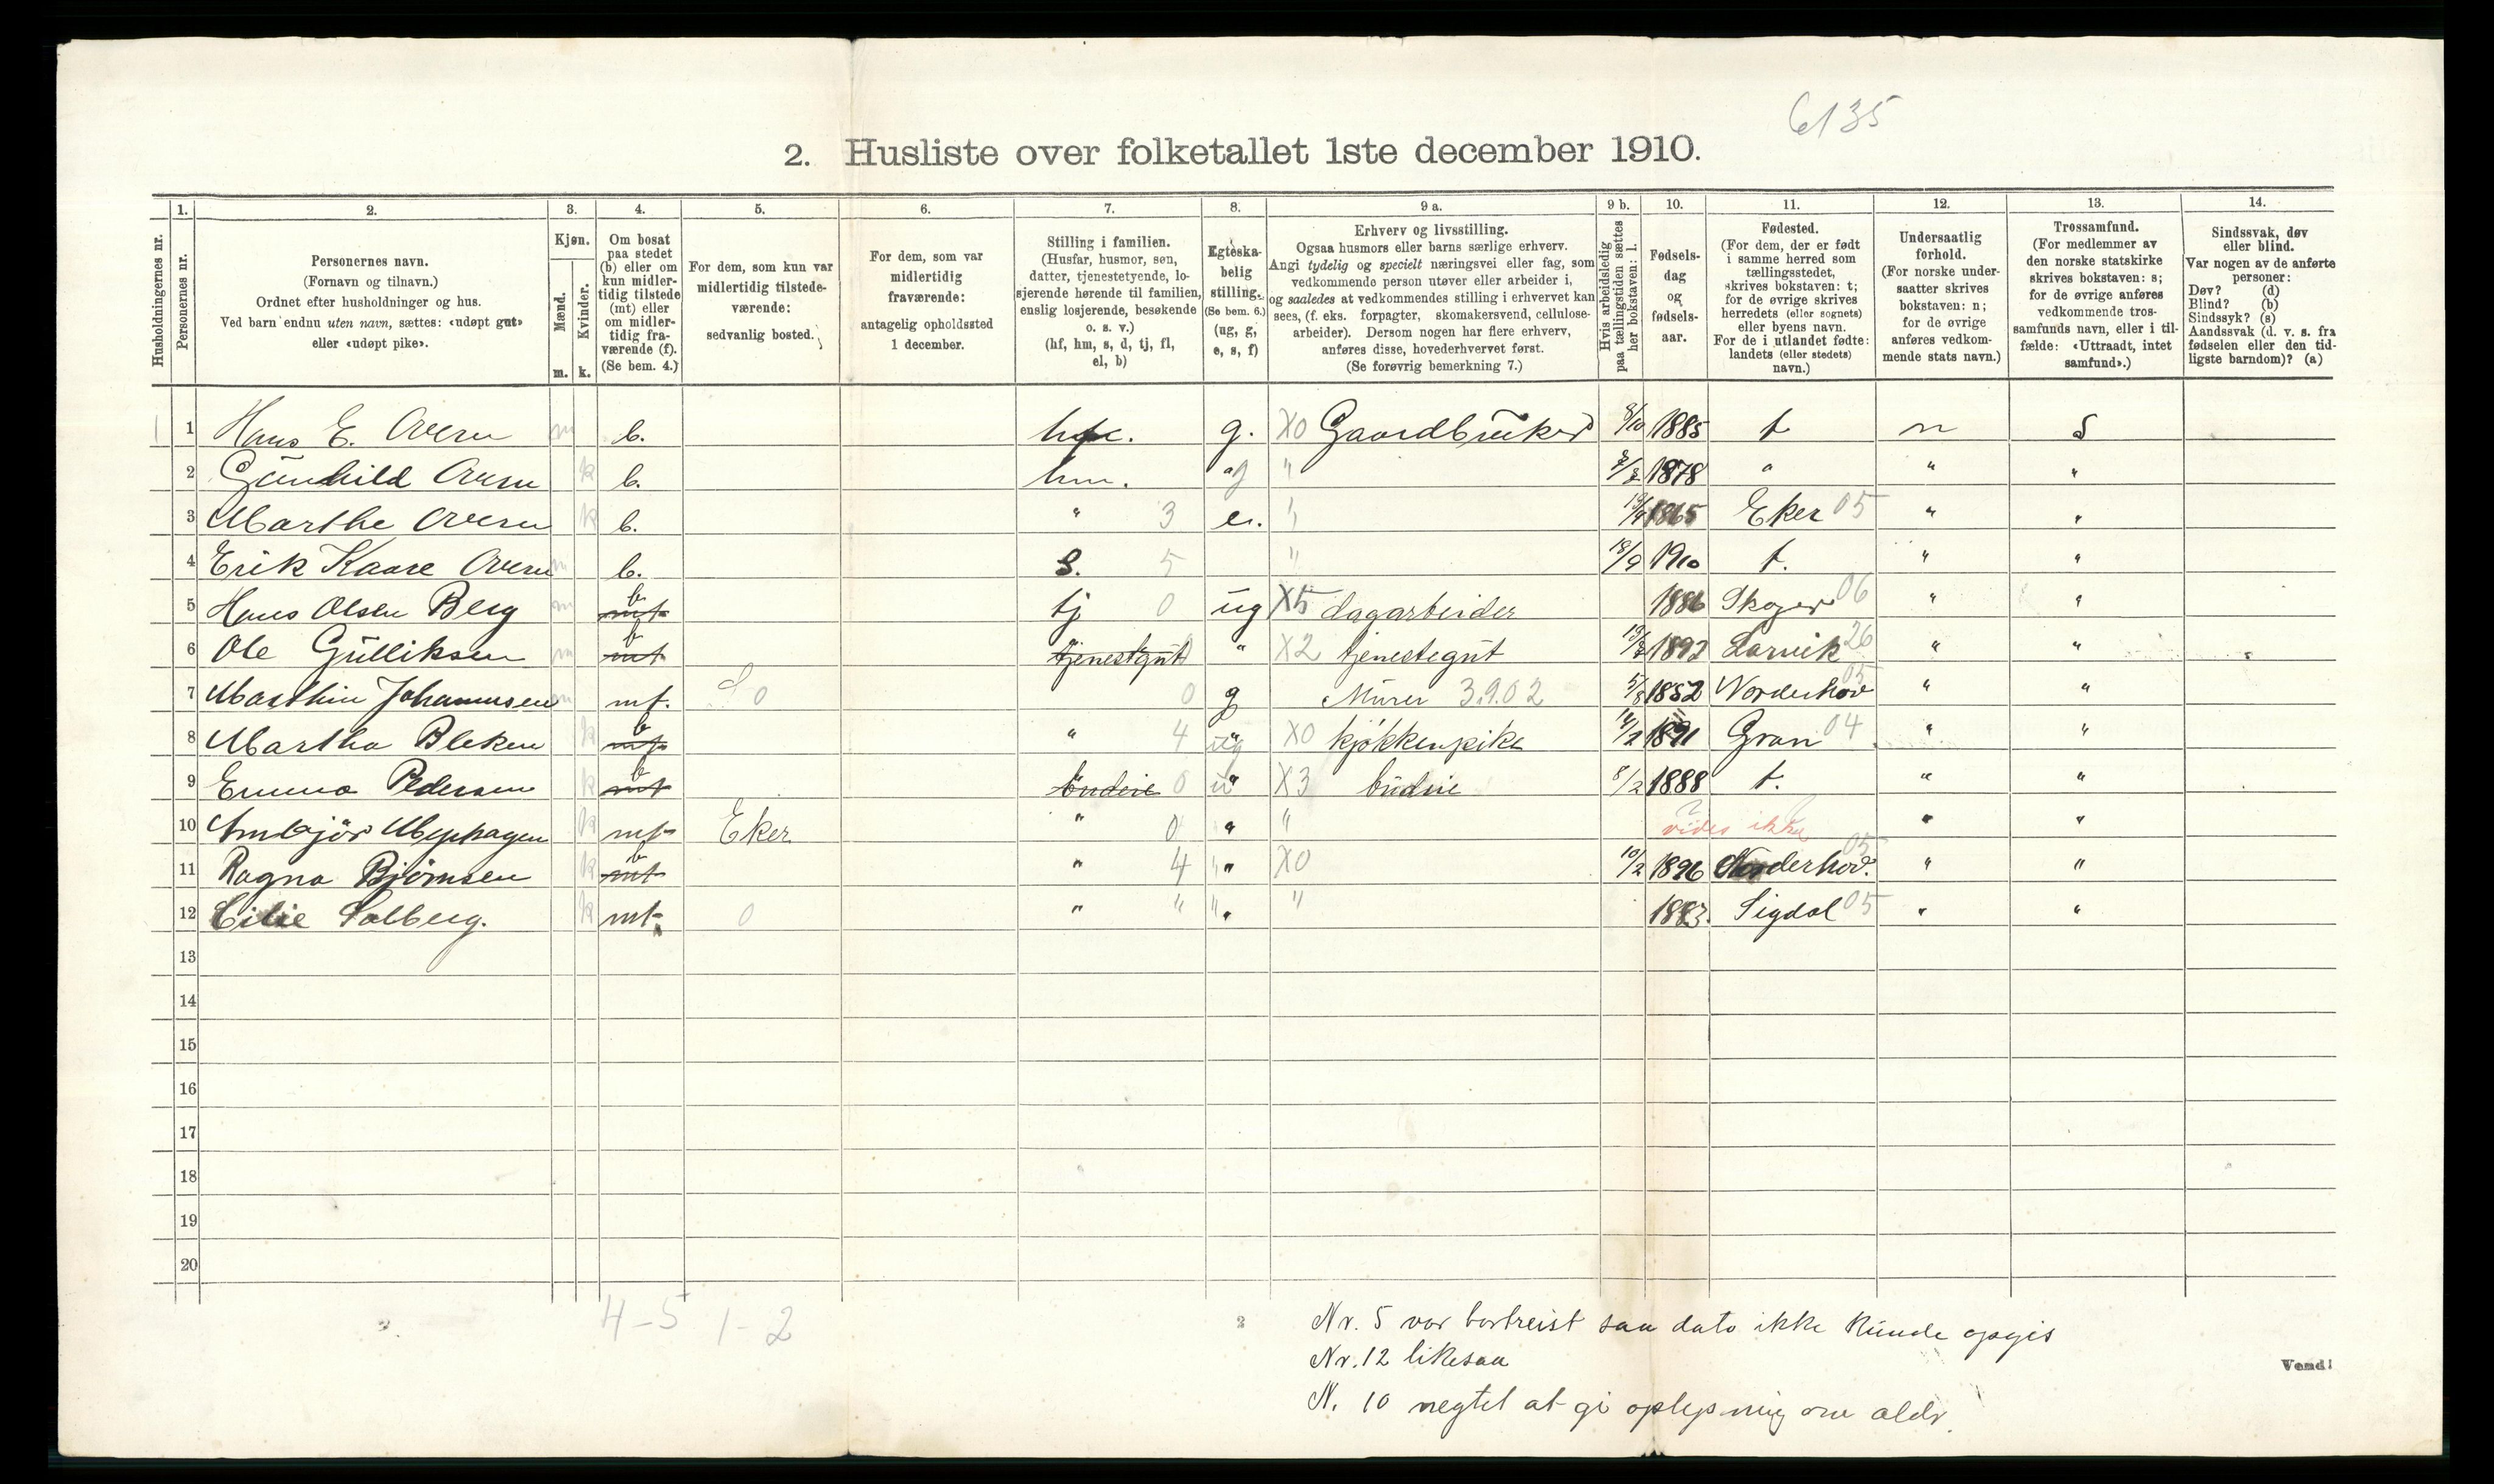 6135
2. Husliste over folketallet 1ste december 1910.
Husholdningernes nr.
1. Personernes nr.
2. Personernes navn. (Fornavn og tilnavn.) Ordnet efter husholdninger og hus. Ved barn endnu uten navn, sættes: «udøpt gut» eller «udøpt pike».
3. Kjøn. Mænd. m. Kvinder. k.
4. Om bosat paa stedet (b) eller om kun midlertidig tilstede (mt) eller om midlertidig fraværende (f). (Se bem. 4.)
5. For dem, som kun var midlertidig tilstedeværende: sedvanlig bosted.
6. For dem, som var midlertidig fraværende: antagelig opholdssted 1 december.
7. Stilling i familien. (Husfar, husmor, søn, datter, tjenestetyende, losjerende hørende til familien, enslig losjerende, besøkende o. s. v.) (hf, hm, s, d, tj, fl, el, b)
8. Egteskabelig stilling. (Se bem. 6.) (ug, g, e, s, f)
9 a. Erhverv og livsstilling. Ogsaa husmors eller barns særlige erhverv. Angi tydelig og specielt næringsvei eller fag, som vedkommende person utøver eller arbeider i, og saaledes at vedkommendes stilling i erhvervet kan sees, (f. eks. forpagter, skomakersvend, cellulosearbeider). Dersom nogen har flere erhverv, anføres disse, hovederhvervet først. (Se forøvrig bemerkning 7.)
9 b. Hvis arbeidsledig paa tællingstiden sættes her bokstaven: l.
10. Fødselsdag og fødselsaar.
11. Fødested. (For dem, der er født i samme herred som tællingsstedet, skrives bokstaven: t; for de øvrige skrives herredets (eller sognets) eller byens navn. For de i utlandet fødte: landets (eller stedets) navn.)
12. Undersaatlig forhold. (For norske undersaatter skrives bokstaven: n; for de øvrige anføres vedkommende stats navn.)
13. Trossamfund. (For medlemmer av den norske statskirke skrives bokstaven: s; for de øvrige anføres vedkommende trossamfunds navn, eller i tilfælde: «Uttraadt, intet samfund».)
14. Sindssvak, døv eller blind. Var nogen av de anførte personer: Døv? (d) Blind? (b) Sindssyk? (s) Aandssvak (d. v. s. fra fødselen eller den tidligste barndom)? (a)
1 1 Hans E. Overn m b. g. X0 Gaardbruker 1885 t n s
2 Gunhild Overn k b. hm. g " 1878 " " "
3 Marthe Overn k b. " 3 e. " 1865 Eker 05 " "
4 Erik Kaare Overn m b. S. 5 " 18/9 1910 t. " "
5 Hans Olsen Berg m mt b tj 0 ug X5 dagarbeider 1886 Skoger 06 " "
6 Ole Gulliksen m mt b tjenestgut 0 " X2 tjenestegut 1892 Larvik 26 " "
7 Marthin Johannesen m mt. 0 0 g Murer 3.9.02 5/8 1852 Norderhov 05 " "
8 Martha Bleken k mt b " 4 ug X0 kjøkkenpike 14/2 1891 Gran 04 " "
9 Emma Pedersen k mt b budeie 0 " X3 budeie 8/2 1888 t. " "
10 k mt Eker " 0 " " vides ikke " "
11 Ragna Bjørnsen k mt b " 4 " X0 10/2 1896 Norderhov. 05 " "
12 Cilie Solberg. k mt. 0 " " " " 1883. Sigdal 05 " "
13
14
15
16
17
18
19
20
4-5 1-2
2
Nr. 5 var bortreist saa dato ikke kunde opgis
Nr. 12 likesaa
Vend!
N. 10 negtet at gi oplysning om alder.